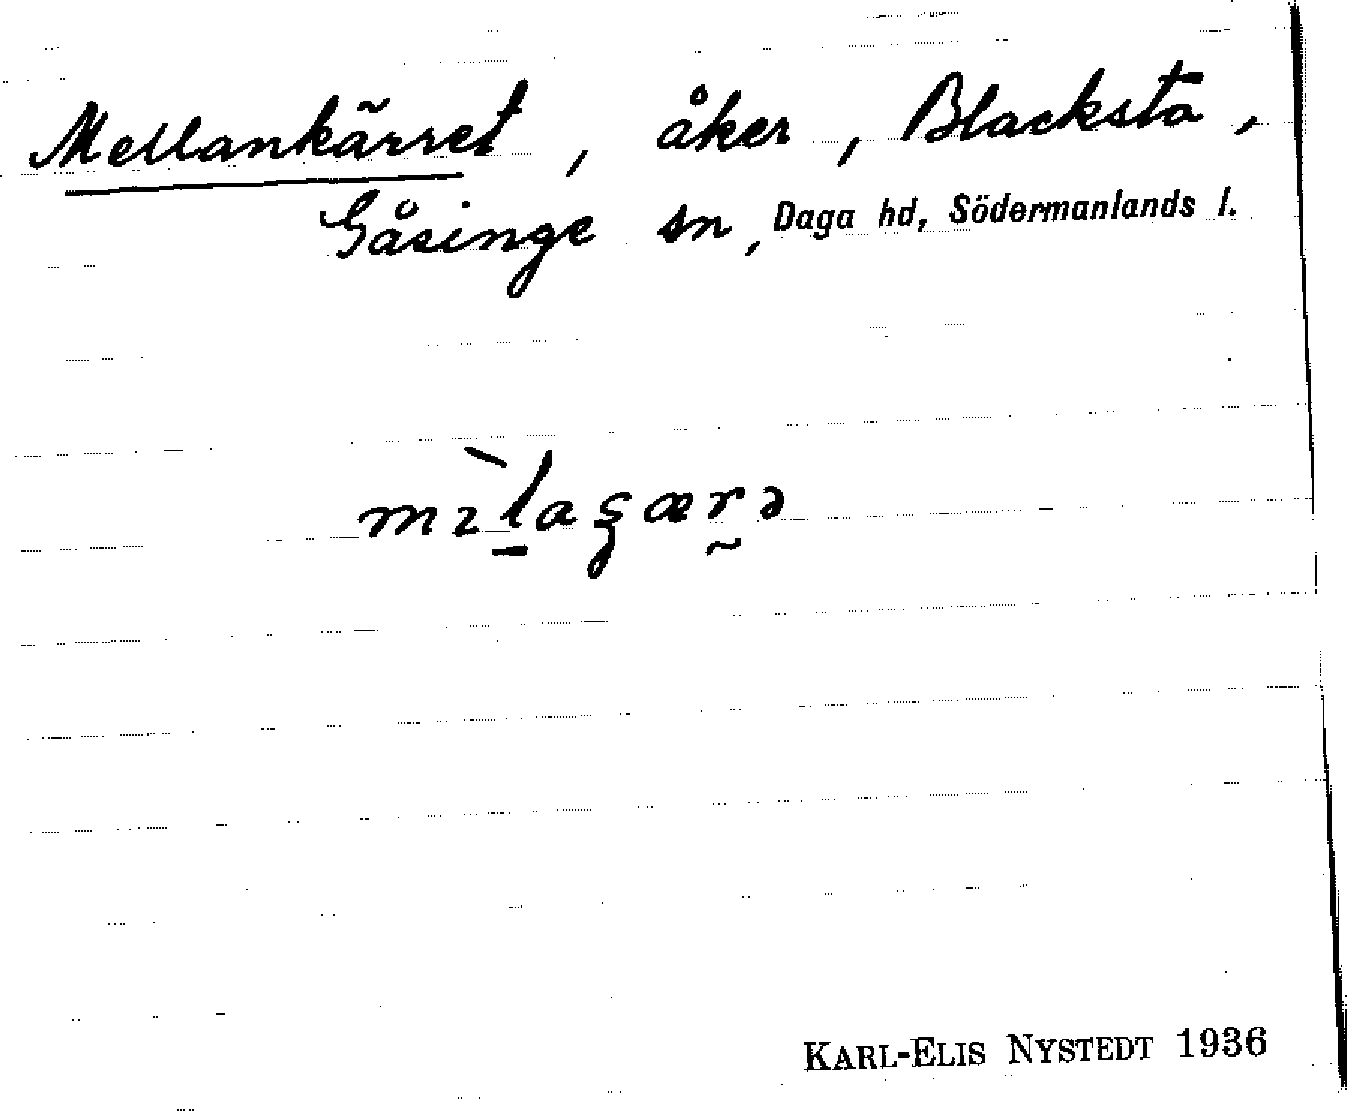 Mellankärret, åker, Blacksta,
Gåsinge sn, Daga hd, Södermanlands l.
mɪ̀l̠aʂær̰ə
KARL-ELIS NYSTEDT 1936